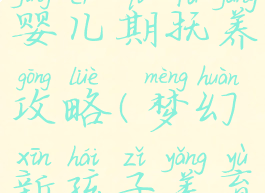 婴儿期抚养
gōng lüè mèng huàn
攻略(梦幻
xīn hái zǐ yǎng yù
新孩子养育